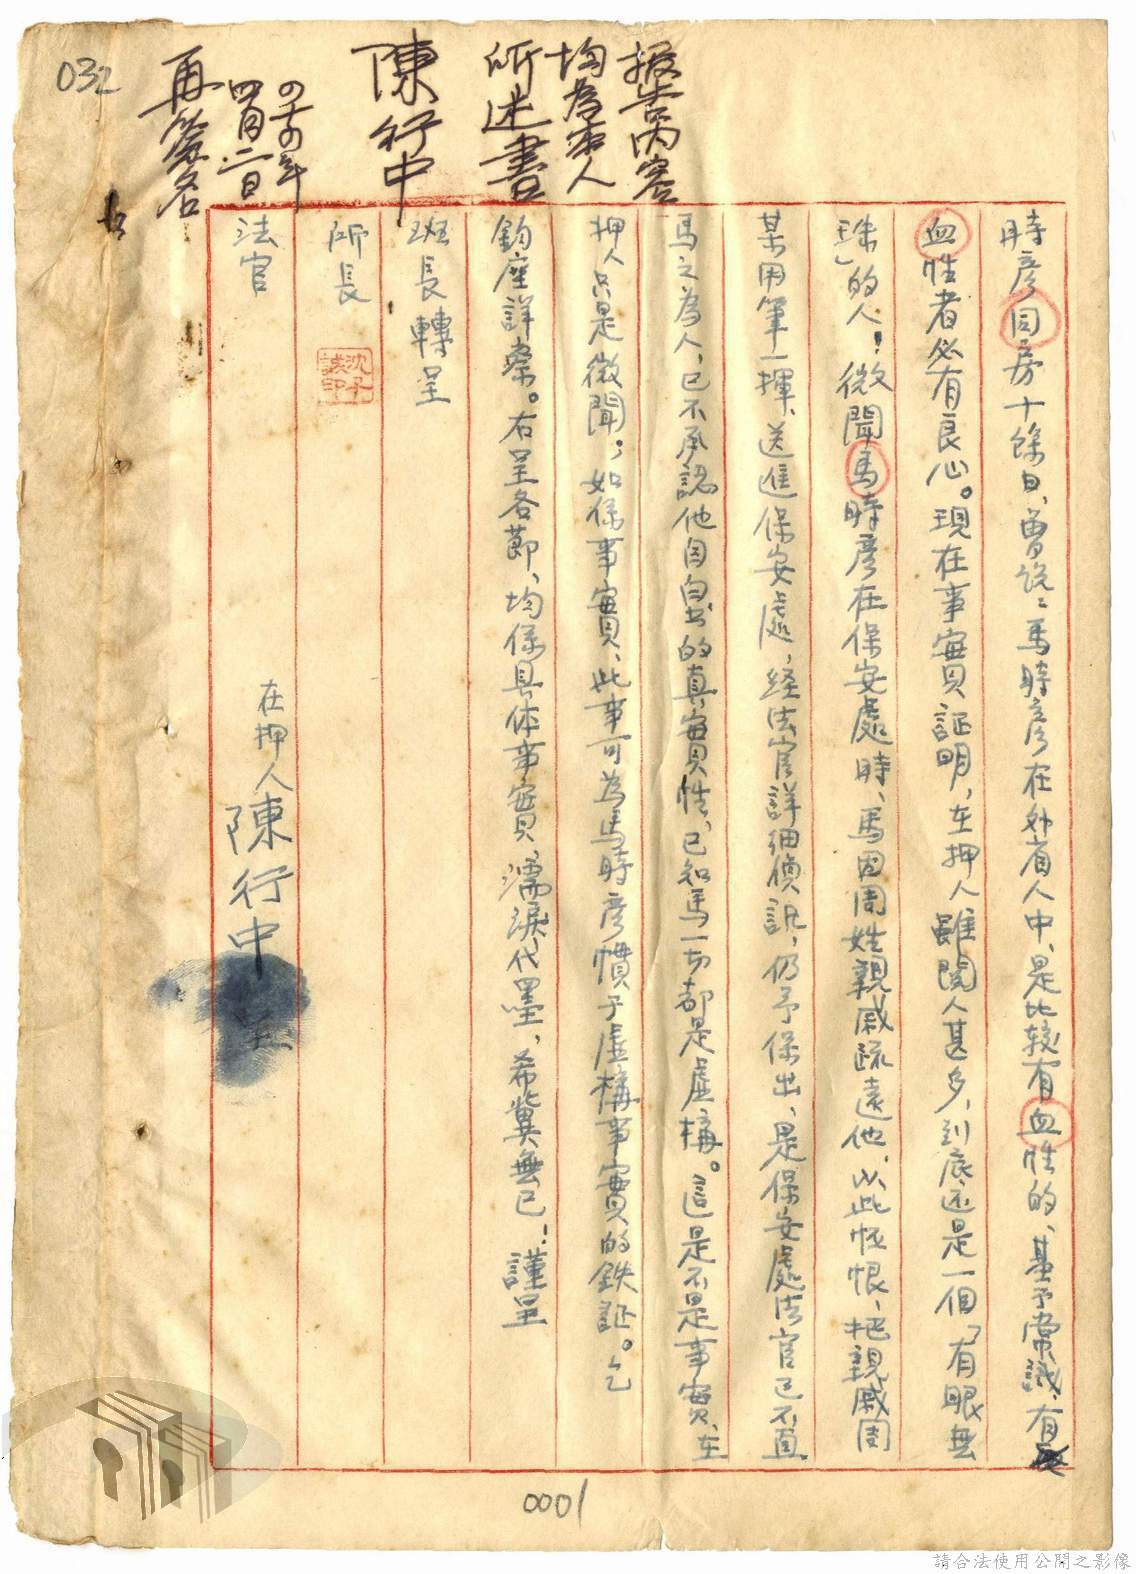 032
報告內容
均為本人
所述書
陳行中
四十四年
四月二日
再簽名
時彥同房十餘日、曾說：馬時彥在外省人中、是比較有血性的、基予常識、有
血性者必有良心。現在事實証明，在押人雖閱人甚多，到底还是一個「有眼無
珠」的人！微聞馬時彥在保安處時、馬因周姓親戚疏遠他、以此怀恨、把親戚周
某用筆一揮、送進保安處，経法官詳細偵訊，仍予保出、是保安處法官已不直
馬之為人，已不承認他自白书的真實性，已知馬一切都是虛構。這是不是事實、在
押人只是微聞；如係事實、此事可為馬時彥慣于虛構事實的鉄証。乞
鈞座詳察。右呈各節，均係具体事實，濡淚代墨，希冀無已！謹呈
班長轉呈
所長
沈子誠印
法官
在押人陳行中呈
0001
請合法使用公開之影像